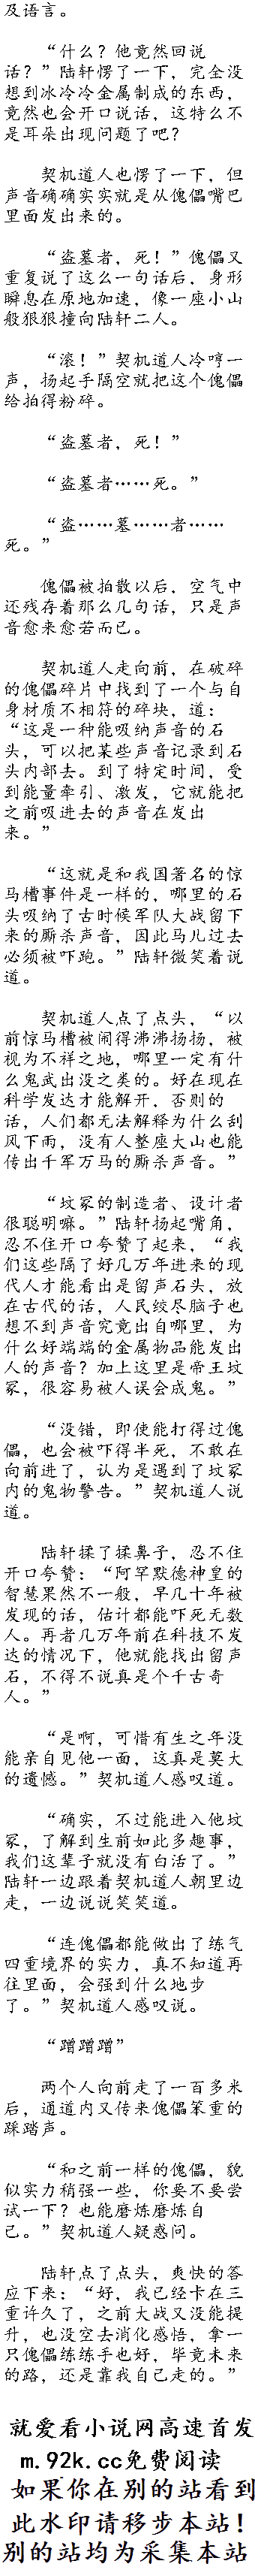 及语言。
“什么？他竟然回说
话？”陆轩愣了一下，完全没
想到冰冷冷金属制成的东西，
竟然也会开口说话，这特么不
是耳朵出现问题了吧？
契机道人也愣了一下，但
声音确确实实就是从傀儡嘴巴
里面发出来的。
“盗墓者，死！”傀儡又
重复说了这么一句话后，身形
瞬息在原地加速，像一座小山
般狠狠撞向陆轩二人。
“滚！”契机道人冷哼一
声，扬起手隔空就把这个傀儡
给拍得粉碎。
“盗墓者，死！”
“盗墓者……死。”
“盗……墓……者……
死。”
傀儡被拍散以后，空气中
还残存着那么几句话，只是声
音愈来愈若而已。
契机道人走向前，在破碎
的傀儡碎片中找到了一个与自
身材质不相符的碎块，道：
“这是一种能吸纳声音的石
头，可以把某些声音记录到石
头内部去。到了特定时间，受
到能量牵引、激发，它就能把
之前吸进去的声音在发出
来。”
“这就是和我国著名的惊
马槽事件是一样的，哪里的石
头吸纳了古时候军队大战留下
来的厮杀声音，因此马儿过去
必须被吓跑。”陆轩微笑着说
道。
契机道人点了点头，“以
前惊马槽被闹得沸沸扬扬，被
视为不祥之地，哪里一定有什
么鬼武出没之类的。好在现在
科学发达才能解开，否则的
话，人们都无法解释为什么刮
风下雨，没有人整座大山也能
传出千军万马的厮杀声音。”
“坟冢的制造者、设计者
很聪明嘛。”陆轩扬起嘴角，
忍不住开口夸赞了起来，“我
们这些隔了好几万年进来的现
代人才能看出是留声石头，放
在古代的话，人民绞尽脑子也
想不到声音究竟出自哪里，为
什么好端端的金属物品能发出
人的声音？加上这里是帝王坟
冢，很容易被人误会成鬼。”
“没错，即使能打得过傀
儡，也会被吓得半死，不敢在
向前进了，认为是遇到了坟冢
内的鬼物警告。”契机道人说
道。
陆轩揉了揉鼻子，忍不住
开口夸赞：“阿罕默德神皇的
智慧果然不一般，早几十年被
发现的话，估计都能吓死无数
人。再者几万年前在科技不发
达的情况下，他就能找出留声
石，不得不说真是个千古奇
人。”
“是啊，可惜有生之年没
能亲自见他一面，这真是莫大
的遗憾。”契机道人感叹道。
“确实，不过能进入他坟
冢，了解到生前如此多趣事，
我们这辈子就没有白活了。”
陆轩一边跟着契机道人朝里边
走，一边说说笑笑道。
“连傀儡都能做出了练气
四重境界的实力，真不知道再
往里面，会强到什么地步
了。”契机道人感叹说。
“蹭蹭蹭”
两个人向前走了一百多米
后，通道内又传来傀儡笨重的
踩踏声。
“和之前一样的傀儡，貌
似实力稍强一些，你要不要尝
试一下？也能磨炼磨炼自
己。”契机道人疑惑问。
陆轩点了点头，爽快的答
应下来：“好，我已经卡在三
重许久了，之前大战又没能提
升，也没空去消化感悟，拿一
只傀儡练练手也好，毕竟未来
的路，还是靠我自己走的。”
就爱看小说网高速首发
m.92k.cc免费阅读
如果你在别的站看到
此水印请移步本站！
别的站均为采集本站